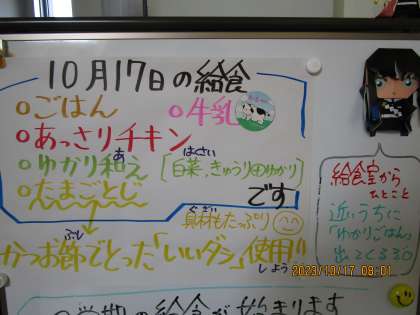 10月17日の給食
○ごはん ○牛乳
○あっさりチキン
○ゆかり和え [白菜、きゅうり、ゆかり]
あ はくさい
○たまごとじ です
具材もたっぷり
ぐざい
かつお節でとった「いいダシ」使用!!
ぶし しよう
給食室から
ひとこと
近いうちに
「ゆかりごはん」
出てくるヨ
2023/10/17 09:01